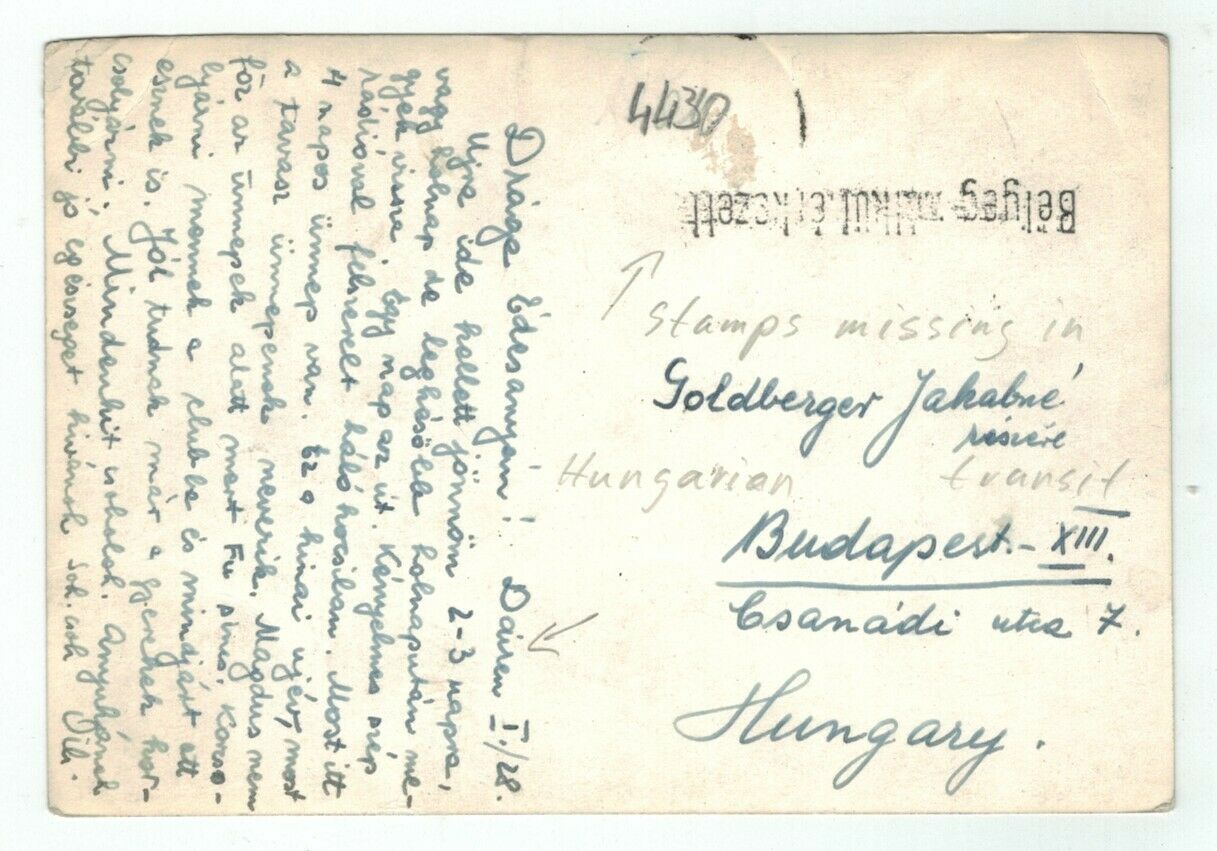 4430
Bélyeg nélkül érkezett
Stamps missing in
Hungarian transit
Goldberger Jakabné
részére
Budapest - XIII.
Csanádi utca 7.
Hungary.
Drága Édesanyám! Dairen I/28.
Ujra ide kellett jönnöm 2-3 napra,
vagy holnap de legkésőbb holnapután me-
gyek vissza. Egy nap az út. Kényelmes szép
rádióval felszerelt hálókocsiban. Most itt
4 napos ünnep van. Ez a kinai ujév, most
a tavasz ünnepének nevezik. Magdus nem
főz az ünnepek alatt mert Fu sincs.
járni mennek a clubba és mindjárt ott
esznek is. Jól tudnak már a gyerekek kor-
csolyázni. Mindenkit csókolok. Anyukának
további jó egészséget kivánok sok csók Vili.